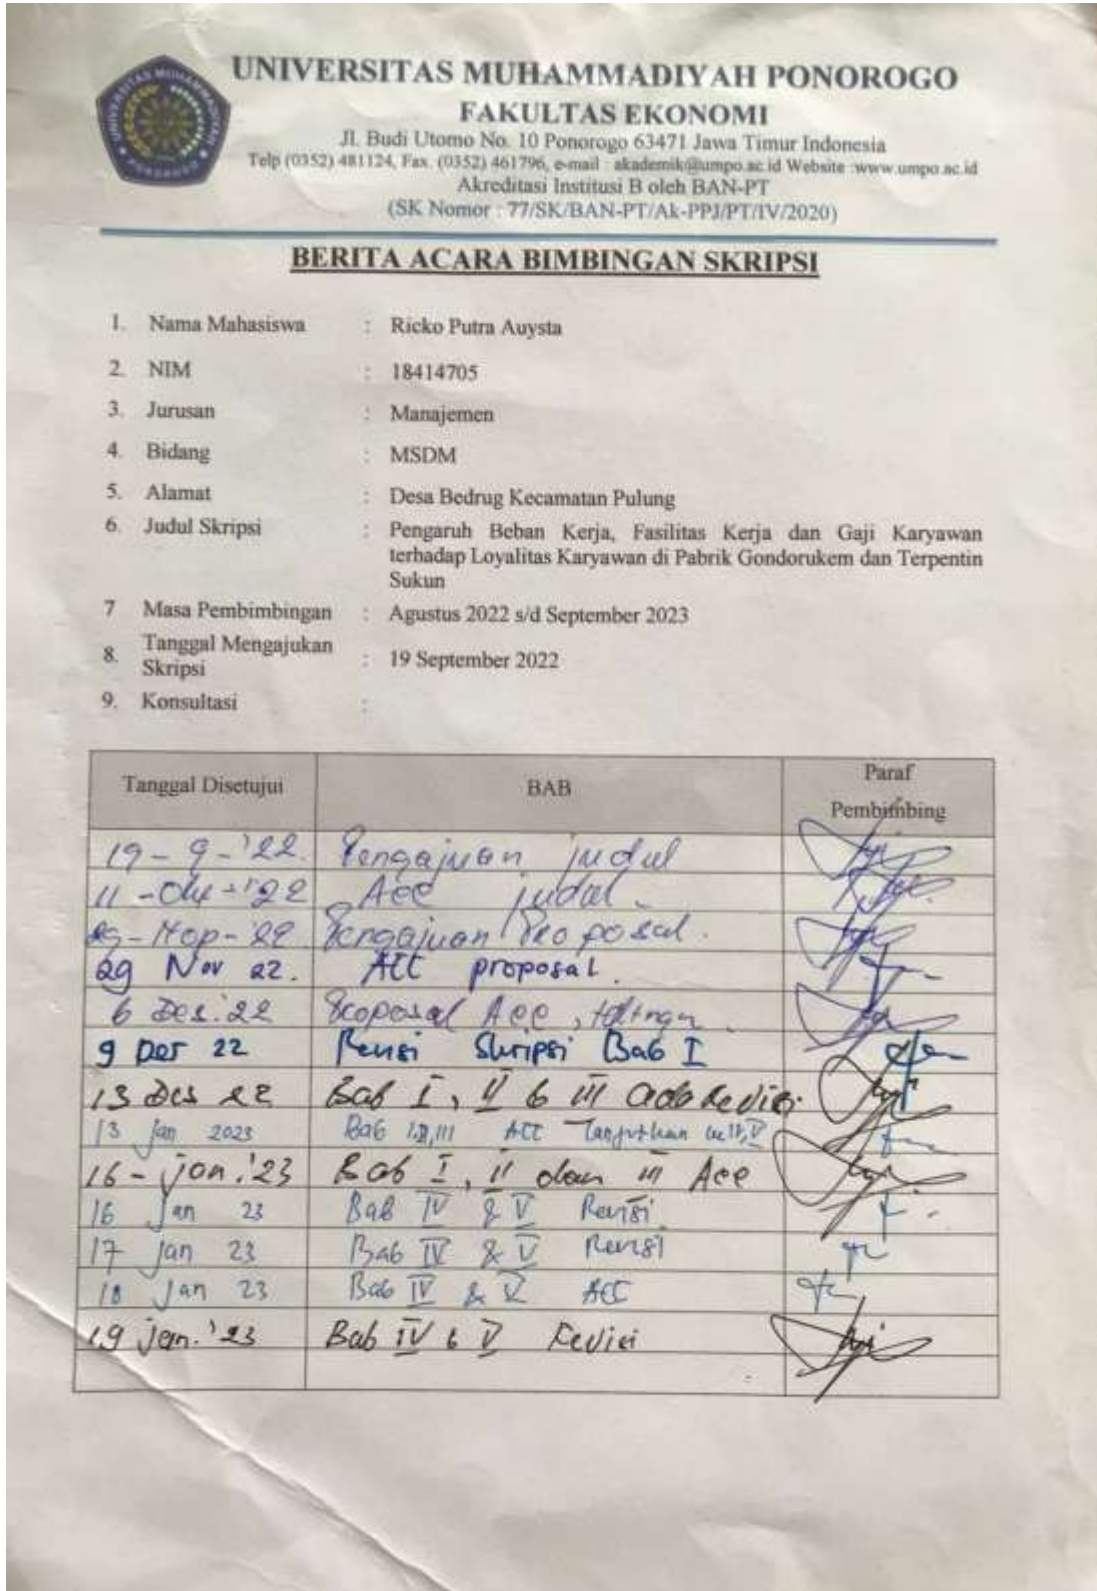 UNIVERSITAS MUHAMMADIYAH PONOROGO
FAKULTAS EKONOMI
Jl. Budi Utomo No. 10 Ponorogo 63471 Jawa Timur Indonesia
Telp (0352) 481124, Fax. (0352) 461796, e-mail : akademik@umpo.ac.id Website :www.umpo.ac.id
Akreditasi Institusi B oleh BAN-PT
(SK Nomor : 77/SK/BAN-PT/Ak-PPJ/PT/IV/2020)
BERITA ACARA BIMBINGAN SKRIPSI
1. Nama Mahasiswa : Ricko Putra Auysta
2. NIM : 18414705
3. Jurusan : Manajemen
4. Bidang : MSDM
5. Alamat : Desa Bedrug Kecamatan Pulung
6. Judul Skripsi : Pengaruh Beban Kerja, Fasilitas Kerja dan Gaji Karyawan
terhadap Loyalitas Karyawan di Pabrik Gondorukem dan Terpentin
Sukun
7 Masa Pembimbingan : Agustus 2022 s/d September 2023
8. Tanggal Mengajukan
Skripsi : 19 September 2022
9. Konsultasi :
Tanggal Disetujui BAB Paraf
Pembimbing
19 - 9 - '22. Pengajuan judul
11 - Okt - '22 Acc judul
22 Pengajuan Proposal.
29 Nov 22. ACC proposal.
6 Des. 22 Proposal Acc,
9 Des 22 Revisi Skripsi Bab I
13 Des 22 Bab I, II & III ada Revisi
13 Jan 2023 Bab I,II,III ACC Lanjutkan
16 - Jan. '23 Bab I, II dan III Acc
16 Jan 23 Bab IV & V Revisi
17 Jan 23 Bab IV & V Revisi
18 Jan 23 Bab IV & V ACC
19 Jan. '23 Bab IV & V Revisi